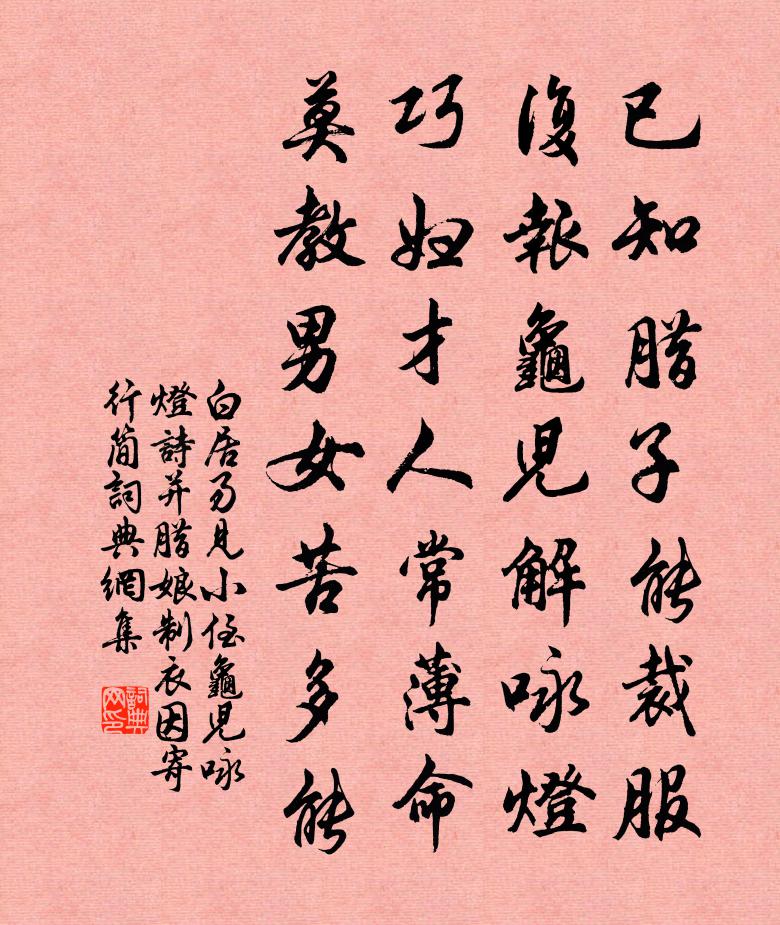 已知腊子能裁服
復報龜兒解咏燈
巧妇才人常薄命
莫教男女苦多能
白居易見小侄龜兒咏
燈詩并腊娘制衣因寄
行简詞典網集
詞典
网印